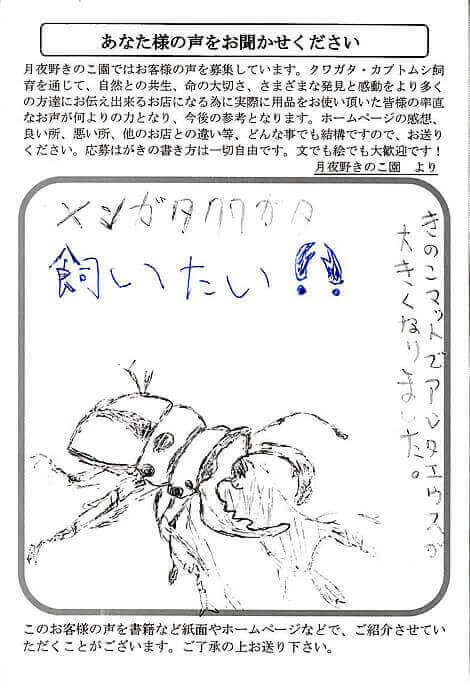 あなた様の声をお聞かせください
月夜野きのこ園ではお客様の声を募集しています。クワガタ・カブトムシ飼
育を通じて、自然との共生、命の大切さ、さまざまな発見と感動をより多く
の方達にお伝え出来るお店になる為に実際に用品をお使い頂いた皆様の率直
なお声が何よりの力となり、今後の参考となります。ホームページの感想、
良い所、悪い所、他のお店との違い等、どんな事でも結構ですので、お送り
ください。応募はがきの書き方は一切自由です。文でも絵でも大歓迎です！
月夜野きのこ園　より
きのこマットでアンタエウスが
大きくなりました。
メンガタクワガタ
飼いたい!!
このお客様の声を書籍など紙面やホームページなどで、ご紹介させてい
ただくことがございます。ご了承の上お送り下さい。